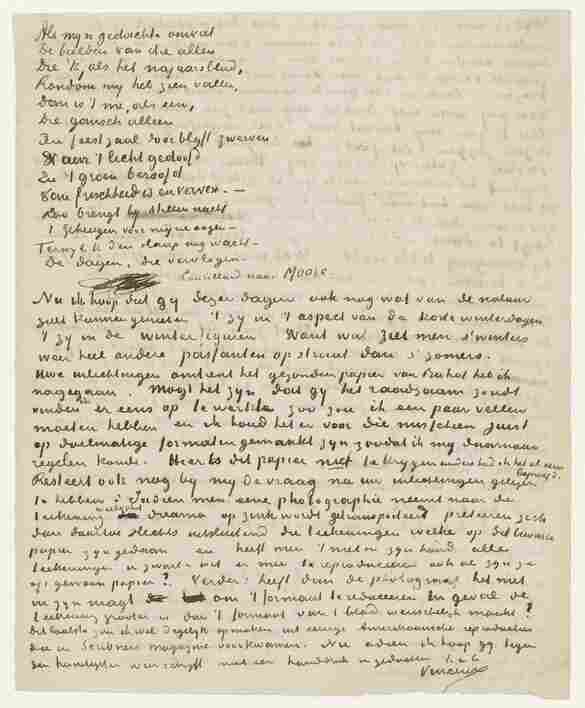 Als myn gedachte omvat
De beelden van die allen
Die 'k, als het najaarsblad,
Rondom my heb zien vallen,
Dan is 't me, als een,
Die gansch alleen
Een feestzaal door blyft zwerven
Waar 't licht gedoofd
En 't groen beroofd
Van frischheid is en verven. —
Zoo brengt by stillen nacht
't Geheugen voor myne oogen —
Terwyl ik den slaap nog wacht —
De dagen, die vervlogen.
Couilland naar Moore.
Nu ik hoop dat gy dezer dagen ook nog wat van de natuur
zult kunnen genieten 't zy in 't aspect van de korte winterdagen
't zy in de winterfiguren Want wat ziet men s'winters
weer heel andere passanten op straat dan s'zomers.
Uwe inlichtingen omtrent het gezonden papier van Buhot heb ik
nagegaan. Mogt het zyn dat gy het raadzaam zoudt
vinden er eens op te werken zoo zou ik een paar vellen
moeten hebben en ik houd het er voor die misschien juist
op doelmatige formaten gemaakt zyn zoodat ik my daarnaar
regelen konde. Hier is dit papier niet te krygen anders had ik het al eens
beproefd.
Resteert ook nog by my de vraag na uw inlichtingen gelezen
te hebben: Indien men eene photographie neemt naar de
teekening welke daarna op zink wordt getransporteerd presteeren zich
dan daartoe slechts uitsluitend die teekeningen welke op dat bewuste
papier zyn gedaan en heeft men 't niet in zyn hand alle
teekeningen in zwart en wit er mee te reproduceeren ook al zyn ze
op gewoon papier? Verder: heeft dan de photograaf het niet
in zyn magt om 't formaat te reduceeren In geval de
teekening grooter is dan 't formaat van 't blad wenschelyk maakt?
Dit laatste zou ik wel degelyk opmaken uit eenige Amerikaansche reproducties
die in Scribners magazine voorkwamen. Nu adieu ik hoop gy tegen
den handdruk in gedachten t.à t.
Vincent